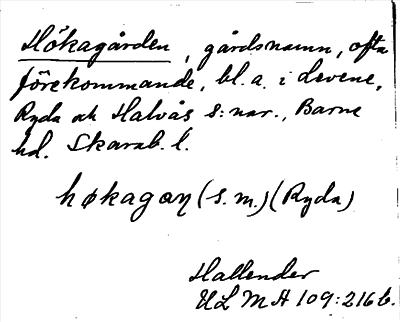 Hökagården, gårdsnamn, ofta
förekommande, bl.a. i Levene,
Ryda och Halvås s:nar., Barne
hd. Skarab. l.
høkagaɳ (s.m.) (Ryda)
Hallender
ULMA 109:216 b.